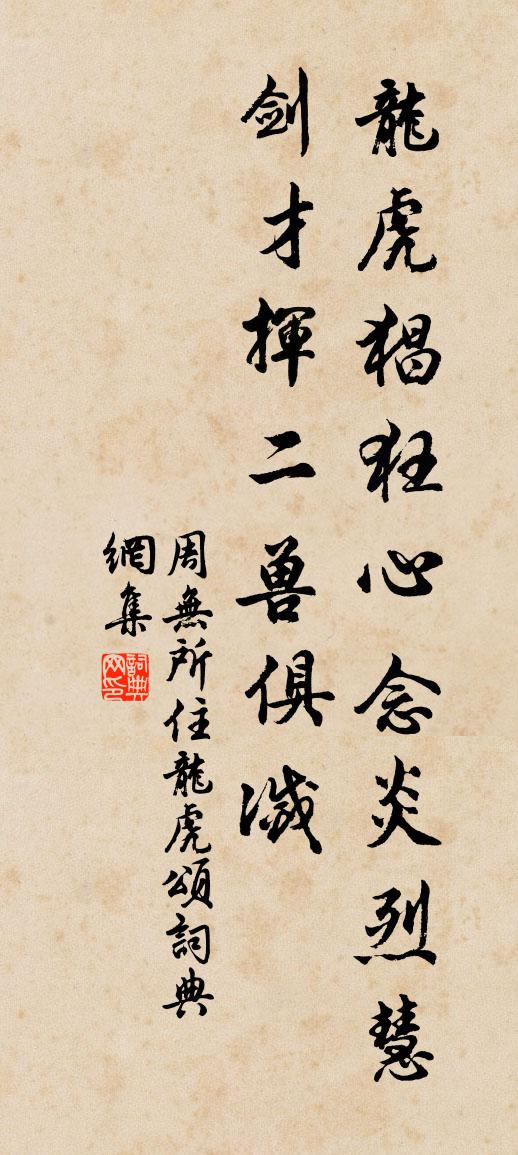 龍虎猖狂心念炎烈慧
劍才揮二兽俱滅
周無所住龍虎頌詞典
網集
詞典
网印